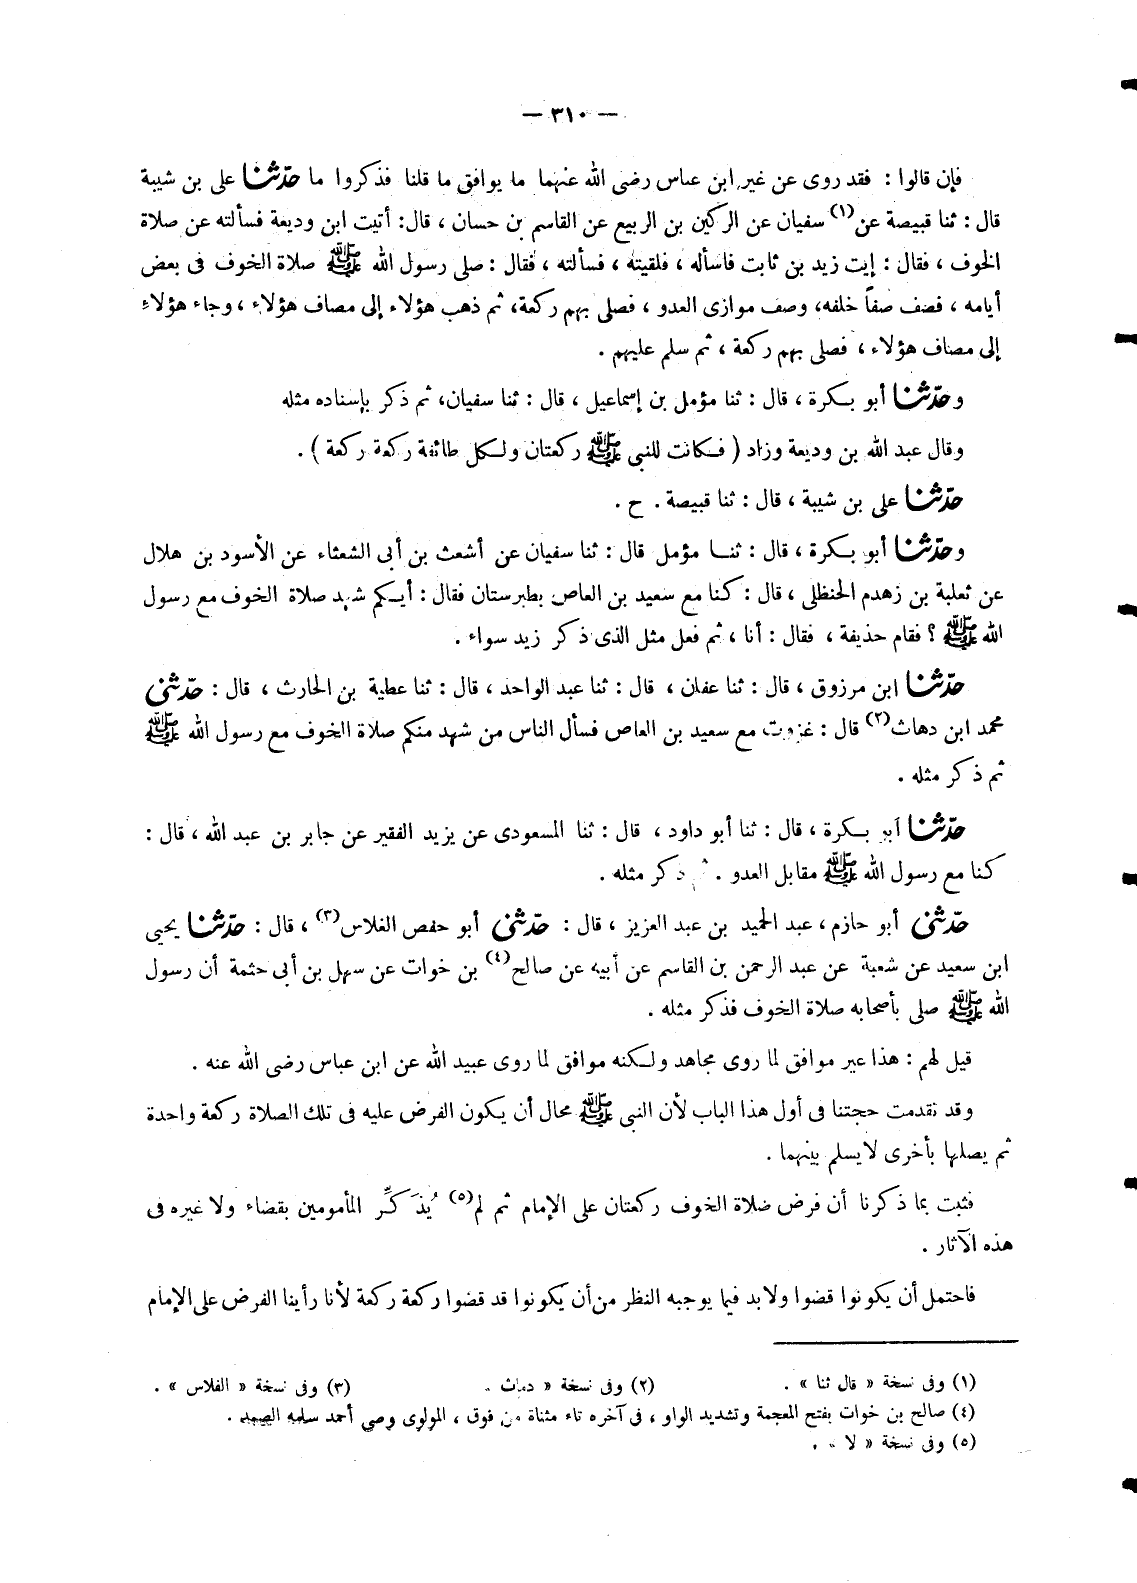 — ٣١٠ —
فإن قالوا : فقد روى عن غير ابن عباس رضى الله عنهما ما يوافق ما قلنا فذكروا ما حدّثنا على بن شيبة
قال : ثنا قبيصة عن(١) سفيان عن الركين بن الربيع عن القاسم بن حسان ، قال: أتيت ابن وديعة فسألته عن صلاة
الخوف ، فقال : إيت زيد بن ثابت فاسأله ، فلقيته ، فسألته ، فقال : صلى رسول الله ﷺ صلاة الخوف فى بعض
أيامه ، فصف صفاً خلفه، وصف موازى العدو ، فصلى بهم ركعة، ثم ذهب هؤلاء إلى مصاف هؤلاء ، وجاء هؤلاء
إلى مصاف هؤلاء ، فصلى بهم ركعة ، ثم سلم عليهم .
وحدّثنا أبو بكرة ، قال : ثنا مؤمل بن إسماعيل ، قال : ثنا سفيان، ثم ذكر بإسناده مثله
وقال عبد الله بن وديعة وزاد ( فكانت للنبى ﷺ ركعتان ولكل طائفة ركعة ركعة ) .
حدّثنا على بن شيبة ، قال : ثنا قبيصة . ح .
وحدّثنا أبو بكرة ، قال : ثنا مؤمل قال : ثنا سفيان عن أشعث بن أبى الشعثاء عن الأسود بن هلال
عن ثعلبة بن زهدم الحنظلى ، قال : كنا مع سعيد بن العاص بطبرستان فقال : أيكم شهد صلاة الخوف مع رسول
الله ﷺ ؟ فقام حذيفة ، فقال : أنا ، ثم فعل مثل الذى ذكر زيد سواء .
حدّثنا ابن مرزوق ، قال : ثنا عفان ، قال : ثنا عبد الواحد ، قال : ثنا عطية بن الحارث ، قال : حدّثنى
محمد ابن دهاث(٢) قال : غزوت مع سعيد بن العاص فسأل الناس من شهد منكم صلاة الخوف مع رسول الله ﷺ
ثم ذكر مثله .
حدّثنا أبو بكرة ، قال : ثنا أبو داود ، قال : ثنا المسعودى عن يزيد الفقير عن جابر بن عبد الله ، قال :
كنا مع رسول الله ﷺ مقابل العدو . ثم ذكر مثله .
حدّثنى أبو حازم ، عبد الحميد بن عبد العزيز ، قال : حدّثنى أبو حفص الغلاس(٣) ، قال : حدّثنا يحيى
ابن سعيد عن شعبة عن عبد الرحمن بن القاسم عن أبيه عن صالح(٤) بن خوات عن سهل بن أبى حثمة أن رسول
الله ﷺ صلى بأصحابه صلاة الخوف فذكر مثله .
قيل لهم : هذا غير موافق لما روى مجاهد ولكنه موافق لما روى عبيد الله عن ابن عباس رضى الله عنه .
وقد تقدمت حجتنا فى أول هذا الباب لأن النبى ﷺ محال أن يكون الفرض عليه فى تلك الصلاة ركعة واحدة
ثم يصلها بأخرى لايسلم بينهما .
فثبت بما ذكرنا أن فرض صلاة الخوف ركعتان على الإمام ثم لم(٥) يُذَكِّر المأمومين بقضاء ولا غيره فى
هذه الآثار .
فاحتمل أن يكونوا قضوا ولابد فيما يوجبه النظر من أن يكونوا قد قضوا ركعة ركعة لأنا رأينا الفرض على الإمام
(١) وفى نسخة « قال ثنا » . (٢) وفى نسخة « دهاث . (٣) وفى نسخة « الفلاس » .
(٤) صالح بن خوات بفتح المعجمة وتشديد الواو ، فى آخره تاء مثناة من فوق ، المولوى وصى أحمد سلمه الصمد .
(٥) وفى نسخة « لا » .